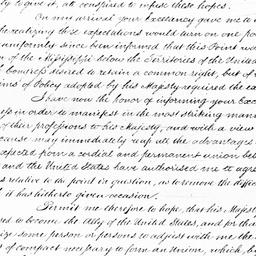 ly signs it, as conspired to refuse these hopes.
On my arrival your Excellency gave me to u
he realizing those expectations would turn on one po
uniformly since been informed that this Point wa
n of the Mississippi below the Territories of the United
Congress desired to retain a common right, but of w
ims of Policy adopted by his Majesty required the ex
I have now the honor of informing your Exce
ess in order to manifest in the most striking mann
of their professions to his Majesty, and with a view
cause may immediately reap all the advantages
xpected from a cordial and permanent union bet
and the United States have authorised me to agre
s relative to the point in question, as to remove the diffic
it has hitherto given occasion.
Permit me therefore to hope, that his Majest
ed to become the Ally of the United States, and for tha
ize some person or persons to adjust with me the
of compact necessary to form an Union, which, b